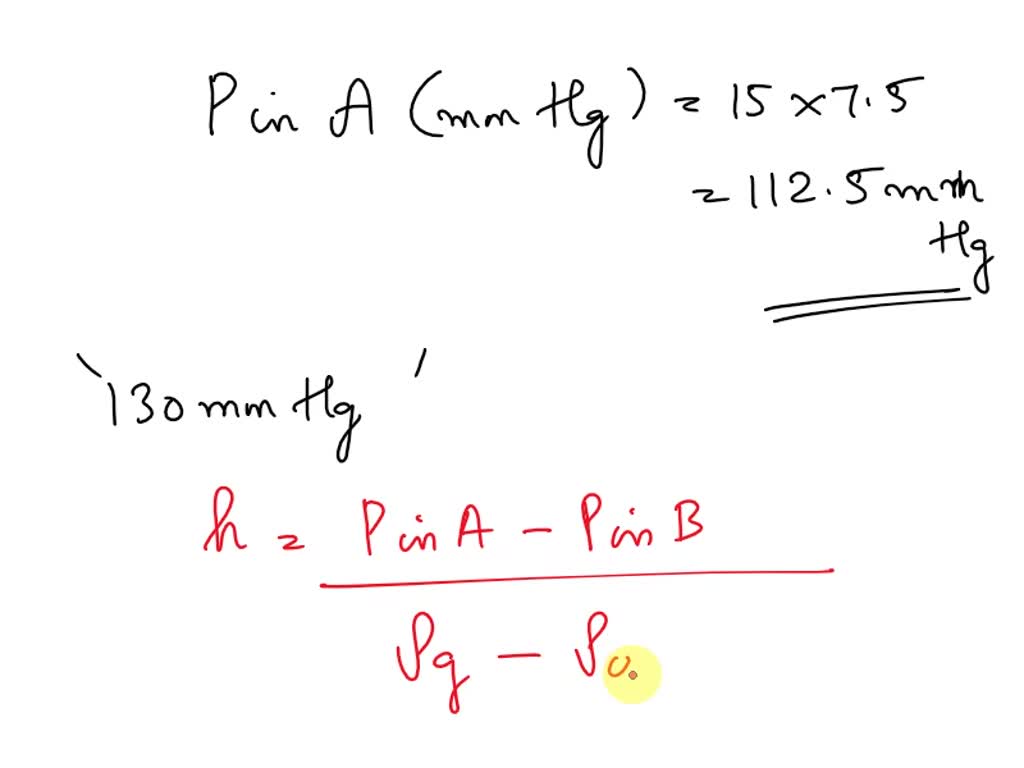 P in A (mm Hg) = 15 × 7.5
= 112.5 mm
Hg
` 130 mm Hg '
h = P in A - P in B
ρg - ρo